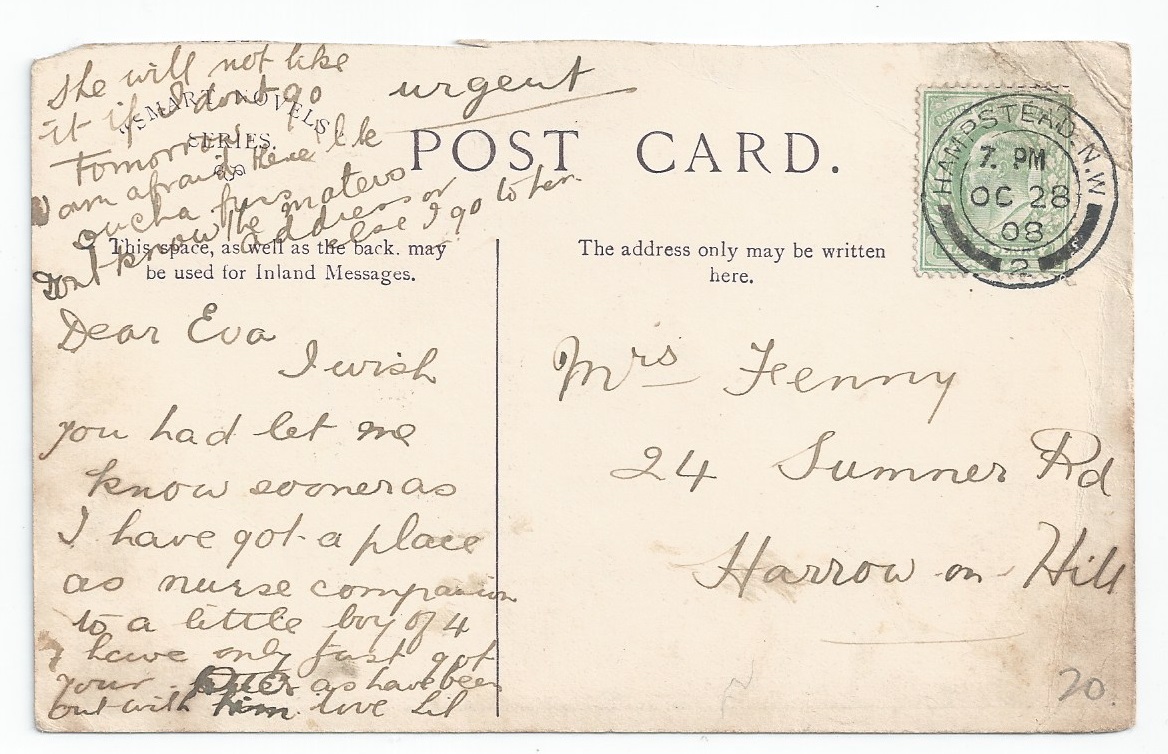 She will not like
it if I dont go
Tomorrow
am afraid
dont know the maters
address or
else I go to her
urgent
"SMART NOVELS"
SERIES.
POST CARD.
HAMPSTEAD. N.W
7. PM
OC 28
08
2
This space, as well as the back. may
be used for Inland Messages.
The address only may be written
here.
Dear Eva
I wish
you had let me
know sooner as
I have got a place
as nurse companion
to a little boy of 4
I have only just got
your letter as have been
out with him love Lil
Mrs Fenny
24 Sumner Rd
Harrow-on-Hill
20.